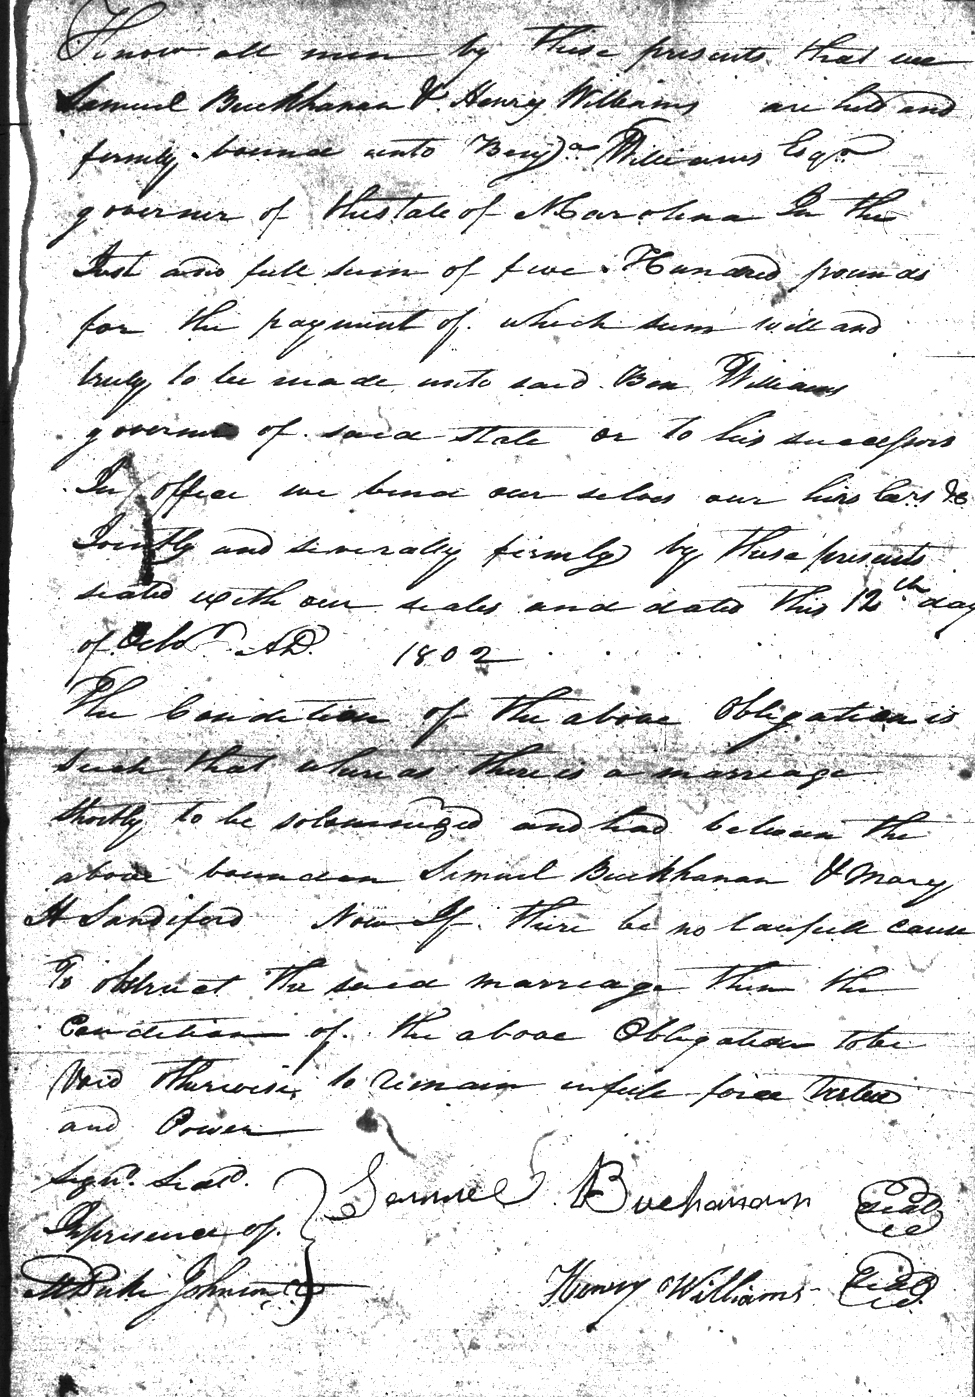 Know all men by these presents that we
Samuel Buckhanan & Henry Williams are held and
firmly bound unto Benj.a Williams Esqr
governer of the State of N Carolina In the
Just and full sum of five Hundred pounds
for the payment of which sum well and
truly to be made unto said Ben Williams
governer of said state or to his successors
In office we bind our selves our hirs &c
Jointly and severally firmly by these presents
sealed with our seales and dated this 12th day
of Octor. AD. 1802
The Condition of the above Obligation is
such that whereas there is a marriage
shortly to be solemnized and had between the
above bounden Samuel Buckhanan & Mary
H Sandiford Now If there be no lawfull cause
To obstruct the said marriage then the
Condition of the above Obligation to be
Void otherwise to remain in full force Vertue
and Power
Signd. Seald.
In presence of
Samuel Buchanan Seal
Johnson
Henry Williams Seal